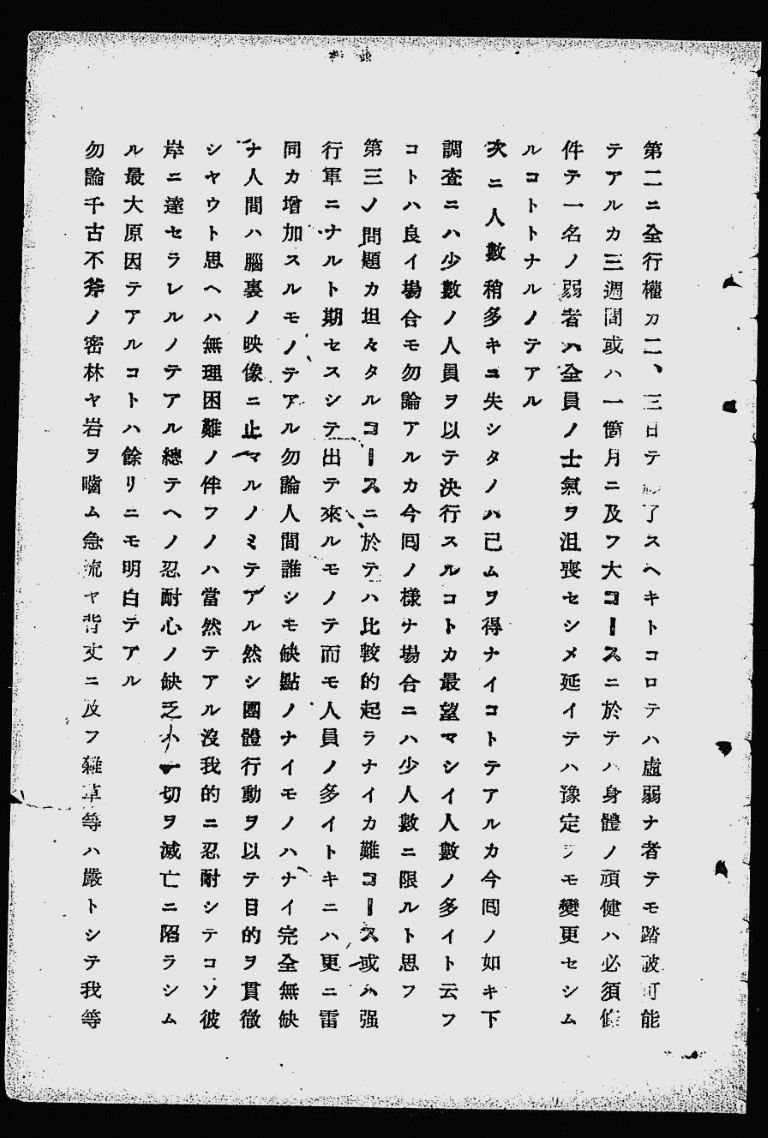 第二ニ全行權カ二、三日テ了スヘキトコロテハ虛弱ナ者テモ踏破可能
テアルカ三週間或ハ一箇月ニ及フ大コースニ於テハ身體ノ頑健ハ必須條
件テ一名ノ弱者ハ全員ノ士氣ヲ沮喪セシメ延イテハ豫定ヲモ變更セシム
ルコトトナルノテアル
次ニ人數稍多キニ失シタノハ已ムヲ得ナイコトテアルカ今囘ノ如キ下
調査ニハ少數ノ人員ヲ以テ決行スルコトカ最望マシイ人數ノ多イト云フ
コトハ良イ場合モ勿論アルカ今囘ノ樣ナ場合ニハ少人數ニ限ルト思フ
第三ノ問題カ坦々タルコースニ於テハ比較的起ラナイカ難コース或ハ强
行軍ニナルト期セスシテ出テ來ルモノテ而モ人員ノ多イトキニハ更ニ雷
同カ增加スルモノテアル勿論人間誰シモ缺點ノナイモノハナイ完全無缺
ナ人間ハ腦裏ノ映像ニ止マルノミテアル然シ團體行動ヲ以テ目的ヲ貫徹
シヤウト思ヘハ無理困難ノ伴フノハ當然テアル沒我的ニ忍耐シテコソ彼
岸ニ達セラレルノテアル總テヘノ忍耐心ノ缺乏ハ一切ヲ滅亡ニ陷ラシム
ル最大原因テアルコトハ餘リニモ明白テアル
勿論千古不斧ノ密林ヤ岩ヲ嚙ム急流ヤ背丈ニ及フ雜草等ハ嚴トシテ我等